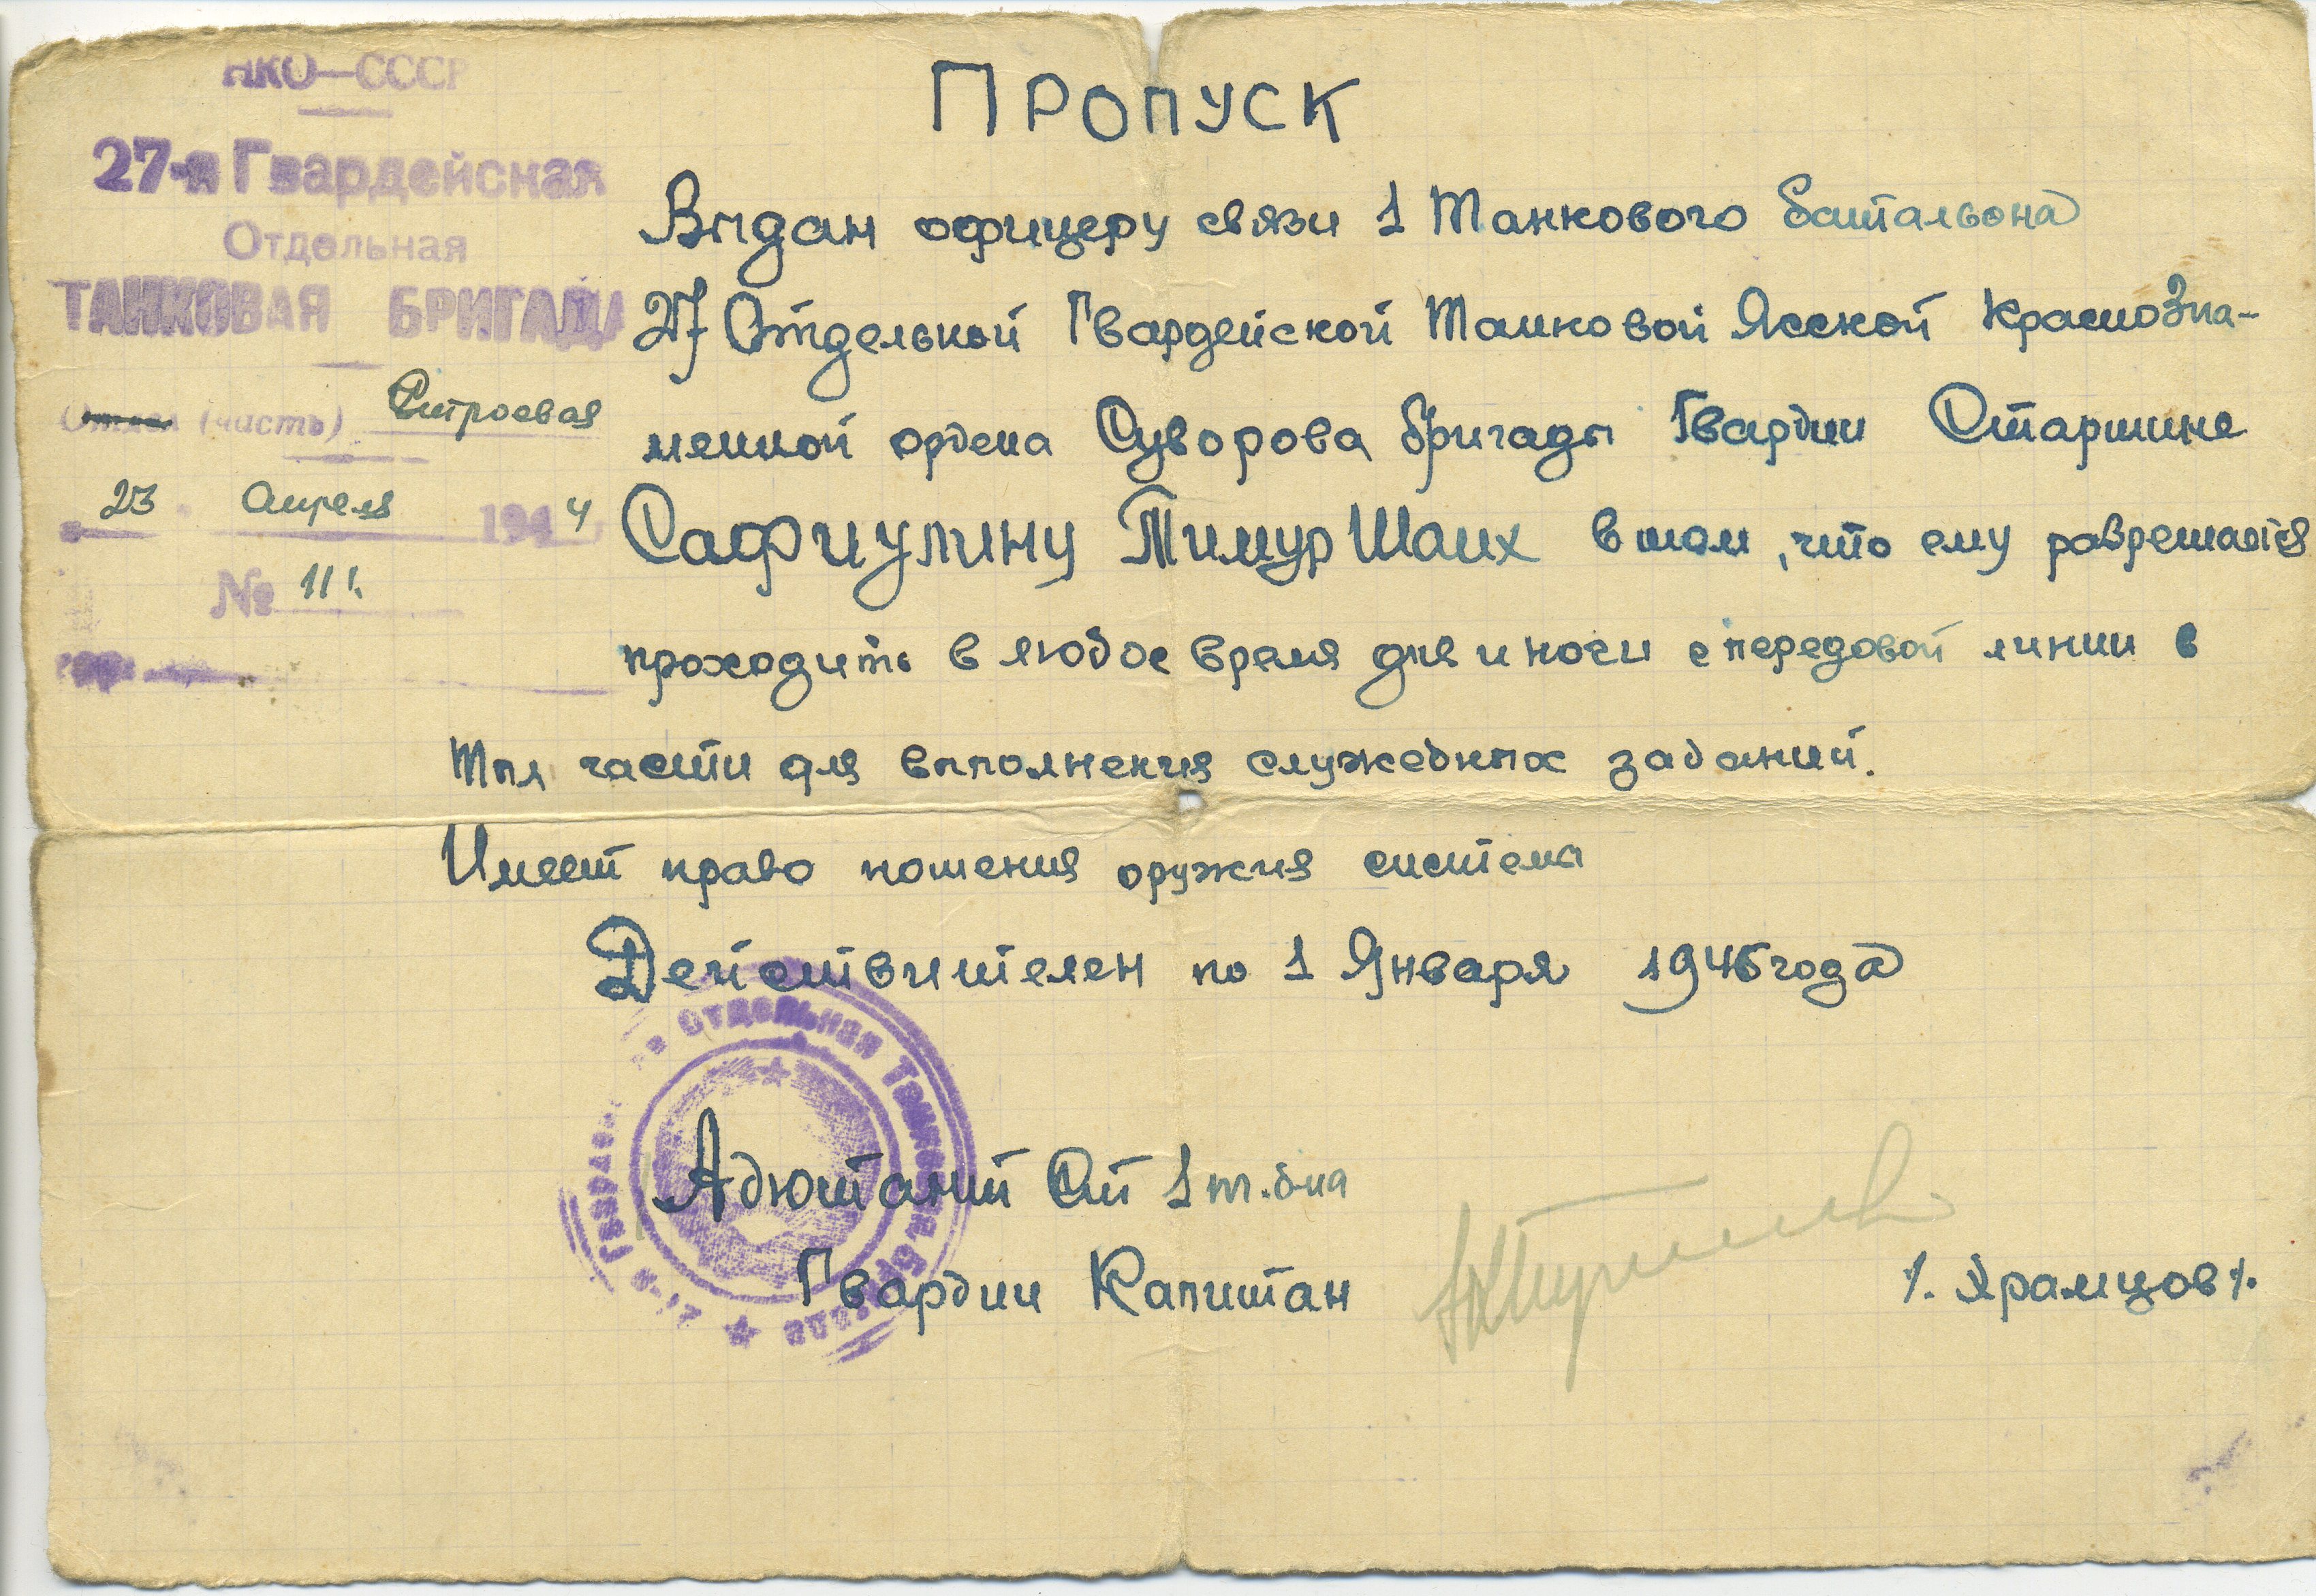 НКО—СССР
27-я Гвардейская
Отдельная
ТАНКОВАЯ БРИГАДА
Отдел (часть) Строевая
23 Апреля 1944
№ 111.
ПРОПУСК
Выдан офицеру связи 1 Танкового батальона
27 Отдельной Гвардейской Танковой Ясской Красно Зна-
менной ордена Суворова бригады Гвардии Старшине
Сафиулину Тимур Шаих в том, что ему разрешается
проходить в любое время дня и ночи с передовой линии в
тыл части для выполнения служебных заданий.
Имеет право ношения оружия система
Действителен по 1 Января 1945 года
27-я Гвардейская Отдельная Танковая Бригада
Адютант Ст 1 т.б-на
Гвардии Капитан
/. Храмцов /.